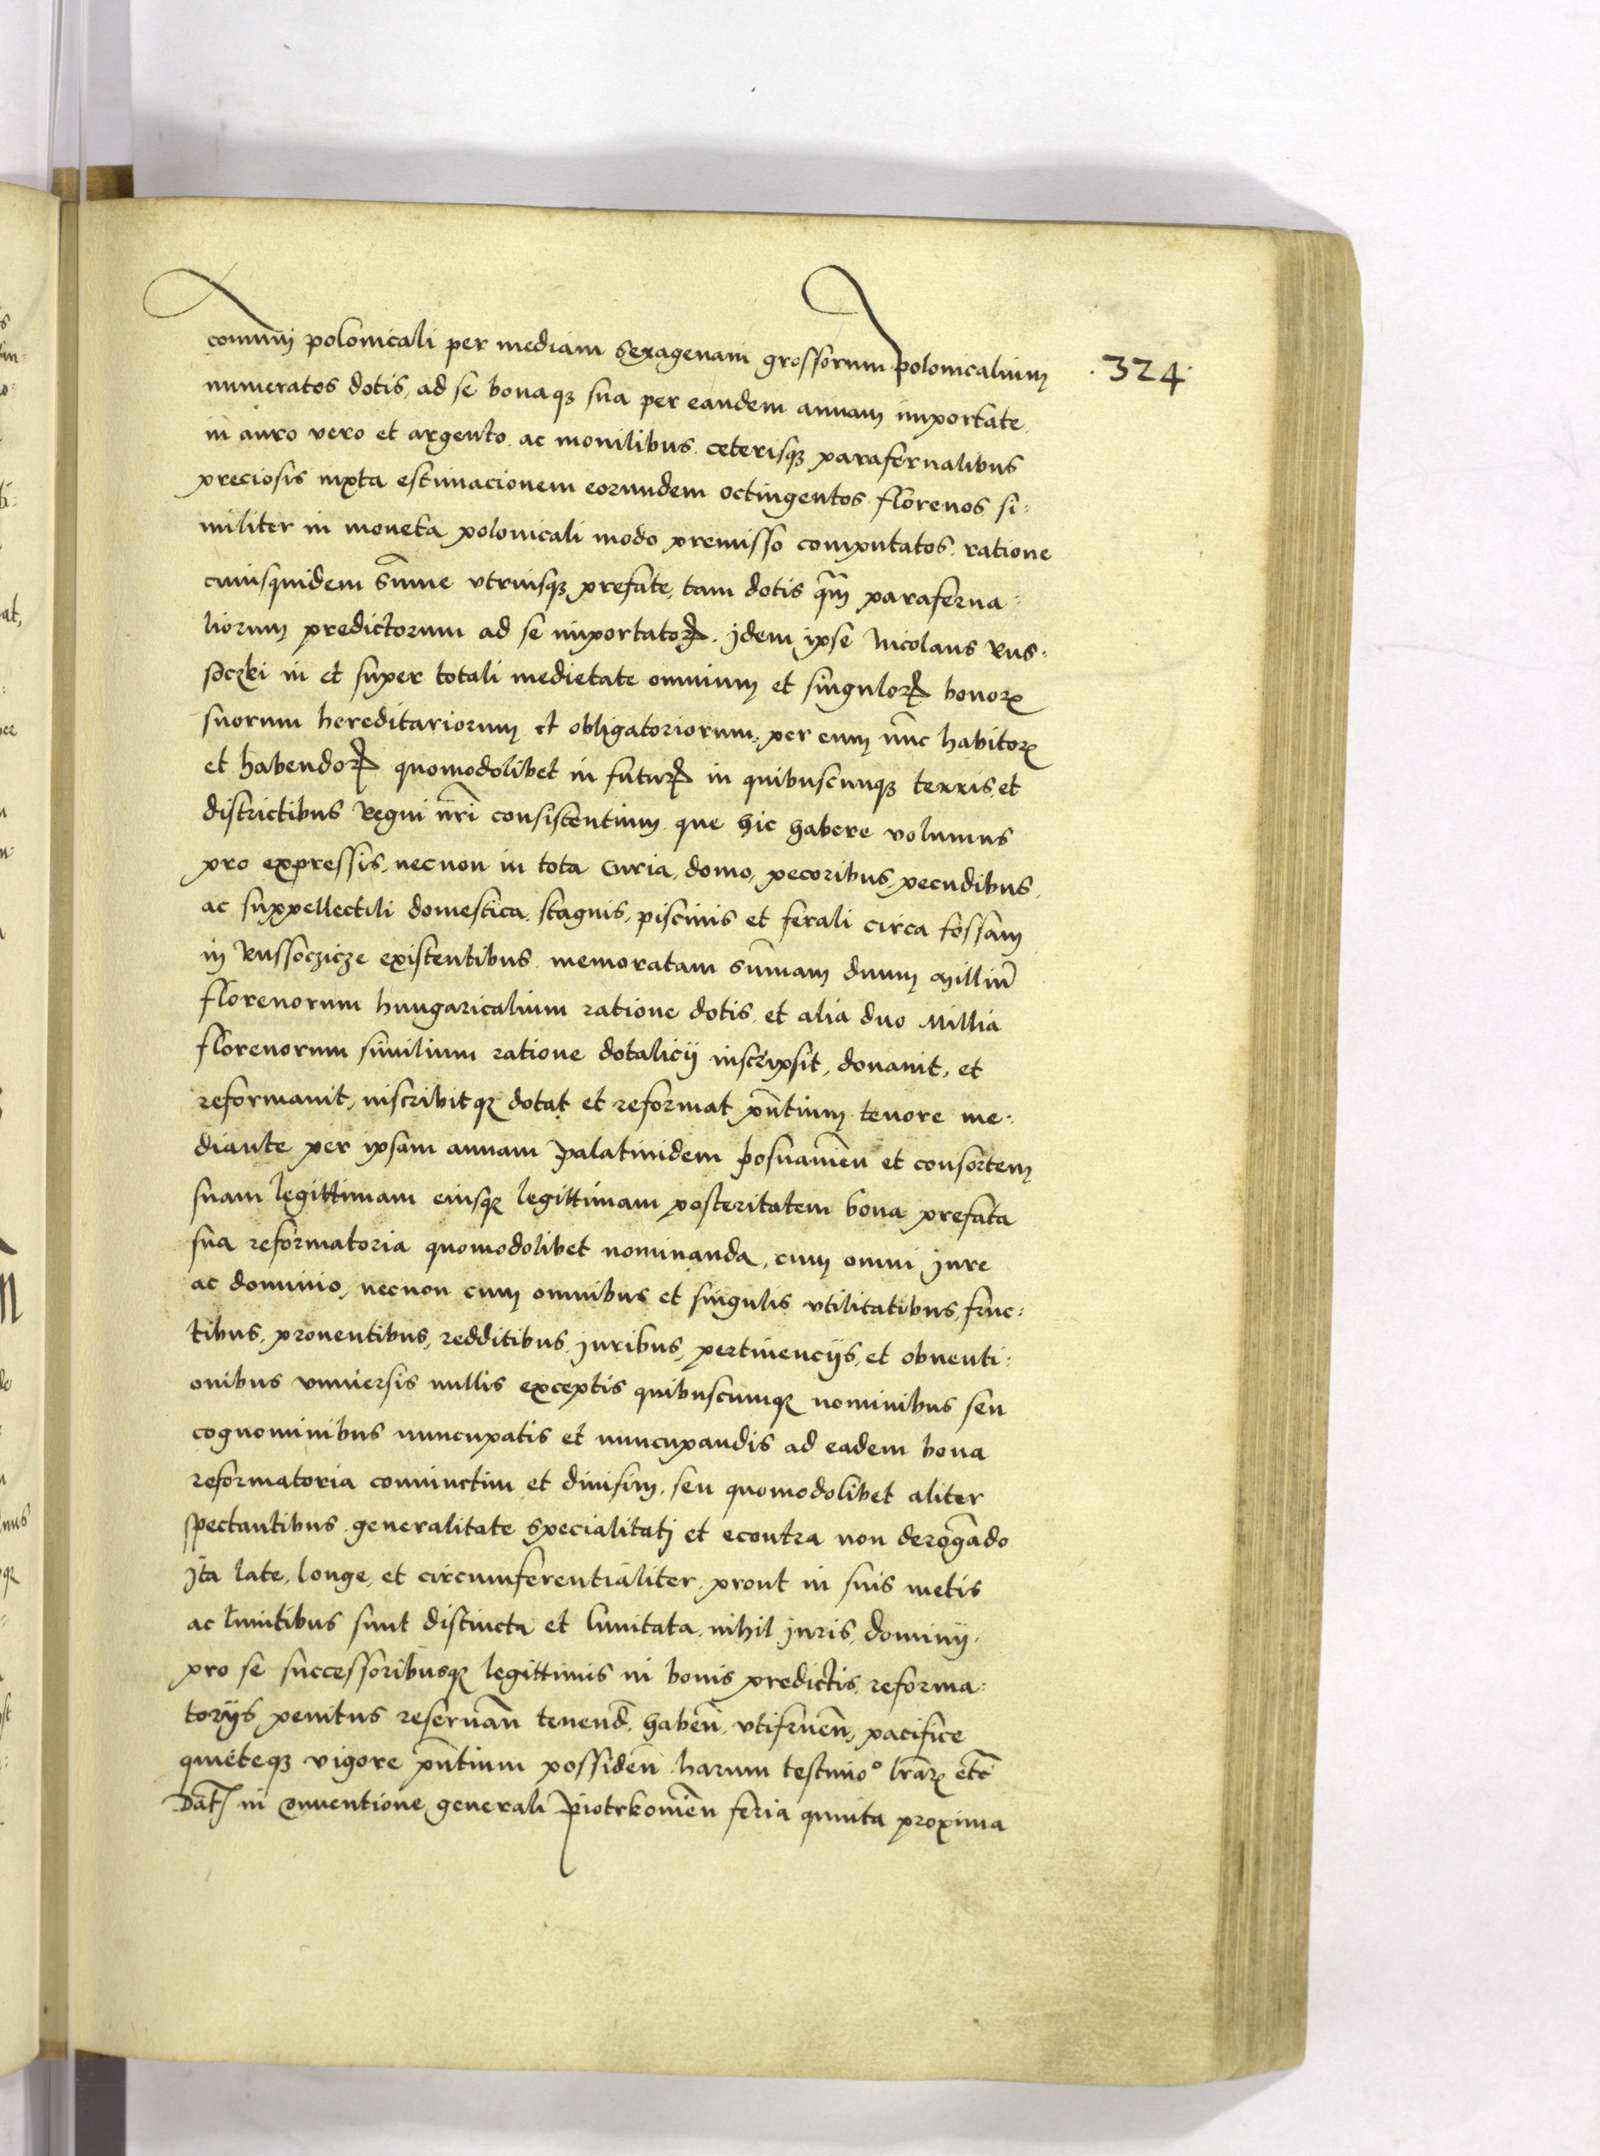 .324.
comuni polonicali per mediam sexagenam grossorum polonicalium
numeratos dotis, ad se bonaqz sua per eandem annam importate
in auro vero et argento ac monilibus ceterisqz parafernalibus
preciosis iuxta estimacionem eorundem octingentos florenos si:
militer in moneta polonicali modo premisso computatos, ratione
cuiusquidem sume vtriusqz prefate, tam dotis qm paraferna:
liorum predictorum ad se importatorꝝ. jdem ipse Nicolaus Rus:
soczki in et super totali medietate omnium et singulorꝝ bonorꝝ
suorum hereditariorum et obligatoriorum, per eum nunc habitorꝝ
et habendorꝝ quomodolibet in futurꝝ in quibuscunqz terris et
districtibus Regni nri consistentium que hic habere volumus
pro expressis, necnon in tota curia, domo, pecoribus, pecudibus,
ac suppellectili domestica, stagnis, piscinis et ferali circa fossam
in Russoczicze existentibus memoratam sumam duum milliu
florenorum hungaricalium ratione dotis, et alia duo Millia
florenorum similium ratione dotalicij inscripsit, donauit, et
reformauit, inscribitqz dotat et reformat pntium tenore me:
diante per ipsam annam Palatinidem posnanien et consortem
suam legittimam eiusqz legittimam posteritatem bona prefata
sua reformatoria quomodolibet nominanda, cum omni jure
ac dominio, necnon cum omnibus et singulis vtilitatibus, fruc:
tibus, prouentibus, redditibus, juribus, pertinencijs, et obuenti:
onibus vniuersis nullis exceptis quibuscumqz nominibus seu
cognominibus nuncupatis et nuncupandis ad eadem bona
reformatoria coniunctim et diuisim, seu quomodolibet aliter
spectantibus generalitate specialitati et econtra non derogado
jta late, longe, et circumferentialiter, prout in suis metis
ac limitibus sunt distincta et limitata, nihil juris, dominij
pro se successoribusqz legittimis in bonis predictis reforma:
torijs penitus reseruan tenend, haben, vtifruen, pacifice
quieteqz vigore pntium possiden harum testimo° lrarꝝ etc
Dat in Conuentione generali Piotrkouien feria quinta proxima